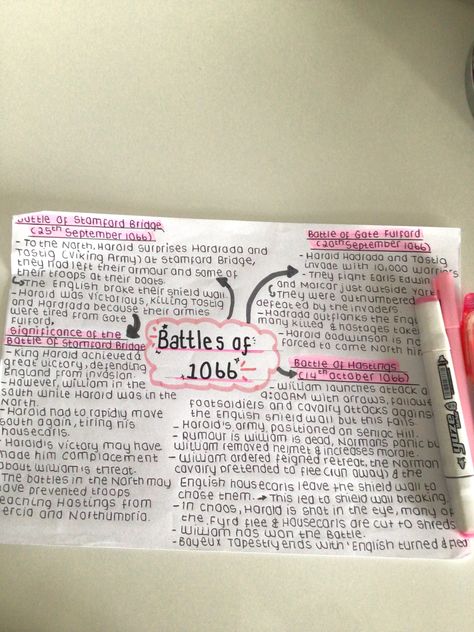 Battle of Stamford Bridge
(25th September 1066)
- To the North, Harold surprises Hardrada and
Tostig (Viking Army) at Stamford Bridge,
they had left their armour and some of
their troops at the boats.
↳ The English broke their shield wall
- Harold was victorious, killing Tostig
and Hardrada because their armies
were tired from Gate
Fulford.
Significance of the
Battle of Stamford Bridge
- King Harold achieved a
great victory, defending
England from invasion.
- However, William in the
south while Harold was in the
North.
- Harold had to rapidly move
south again, tiring his
housecarls.
- Harold's victory may have
made him complacement
about William's threat.
- The battles in the North may
have prevented troops
reaching Hastings from
Mercia and Northumbria.
Battles of
1066
Battle of Gate Fulford
(20th September 1066)
- Harold Hadrada and Tostig
invade with 10,000 warriors
- They fight Earls Edwin
and Morcar, just outside York
- They were outnumbered
defeated by the invaders.
- Hadrada outflanks the English
many killed & hostages taken
- Harold Godwinson is now
forced to come North him
Battle of Hastings
(14th October 1066)
- William launches attack at
9:00AM with arrows, followed
footsoldiers and cavalry attacks against
the English shield wall but this fails.
- Harold's army, positioned on Senlac Hill.
- Rumour is William is dead, Normans panic but
William removed helmet & increases morale.
- William ordered feigned retreat the Norman
cavalry pretended to flee (run away) & the
English housecarls leave the shield wall to
chase them. → This led to shield wall breaking.
- In chaos, Harold is shot in the eye, many of
the Fyrd flee & Housecarls are cut to shreds
- William has won the battle.
- Bayeux Tapestry ends with 'English turned & fled